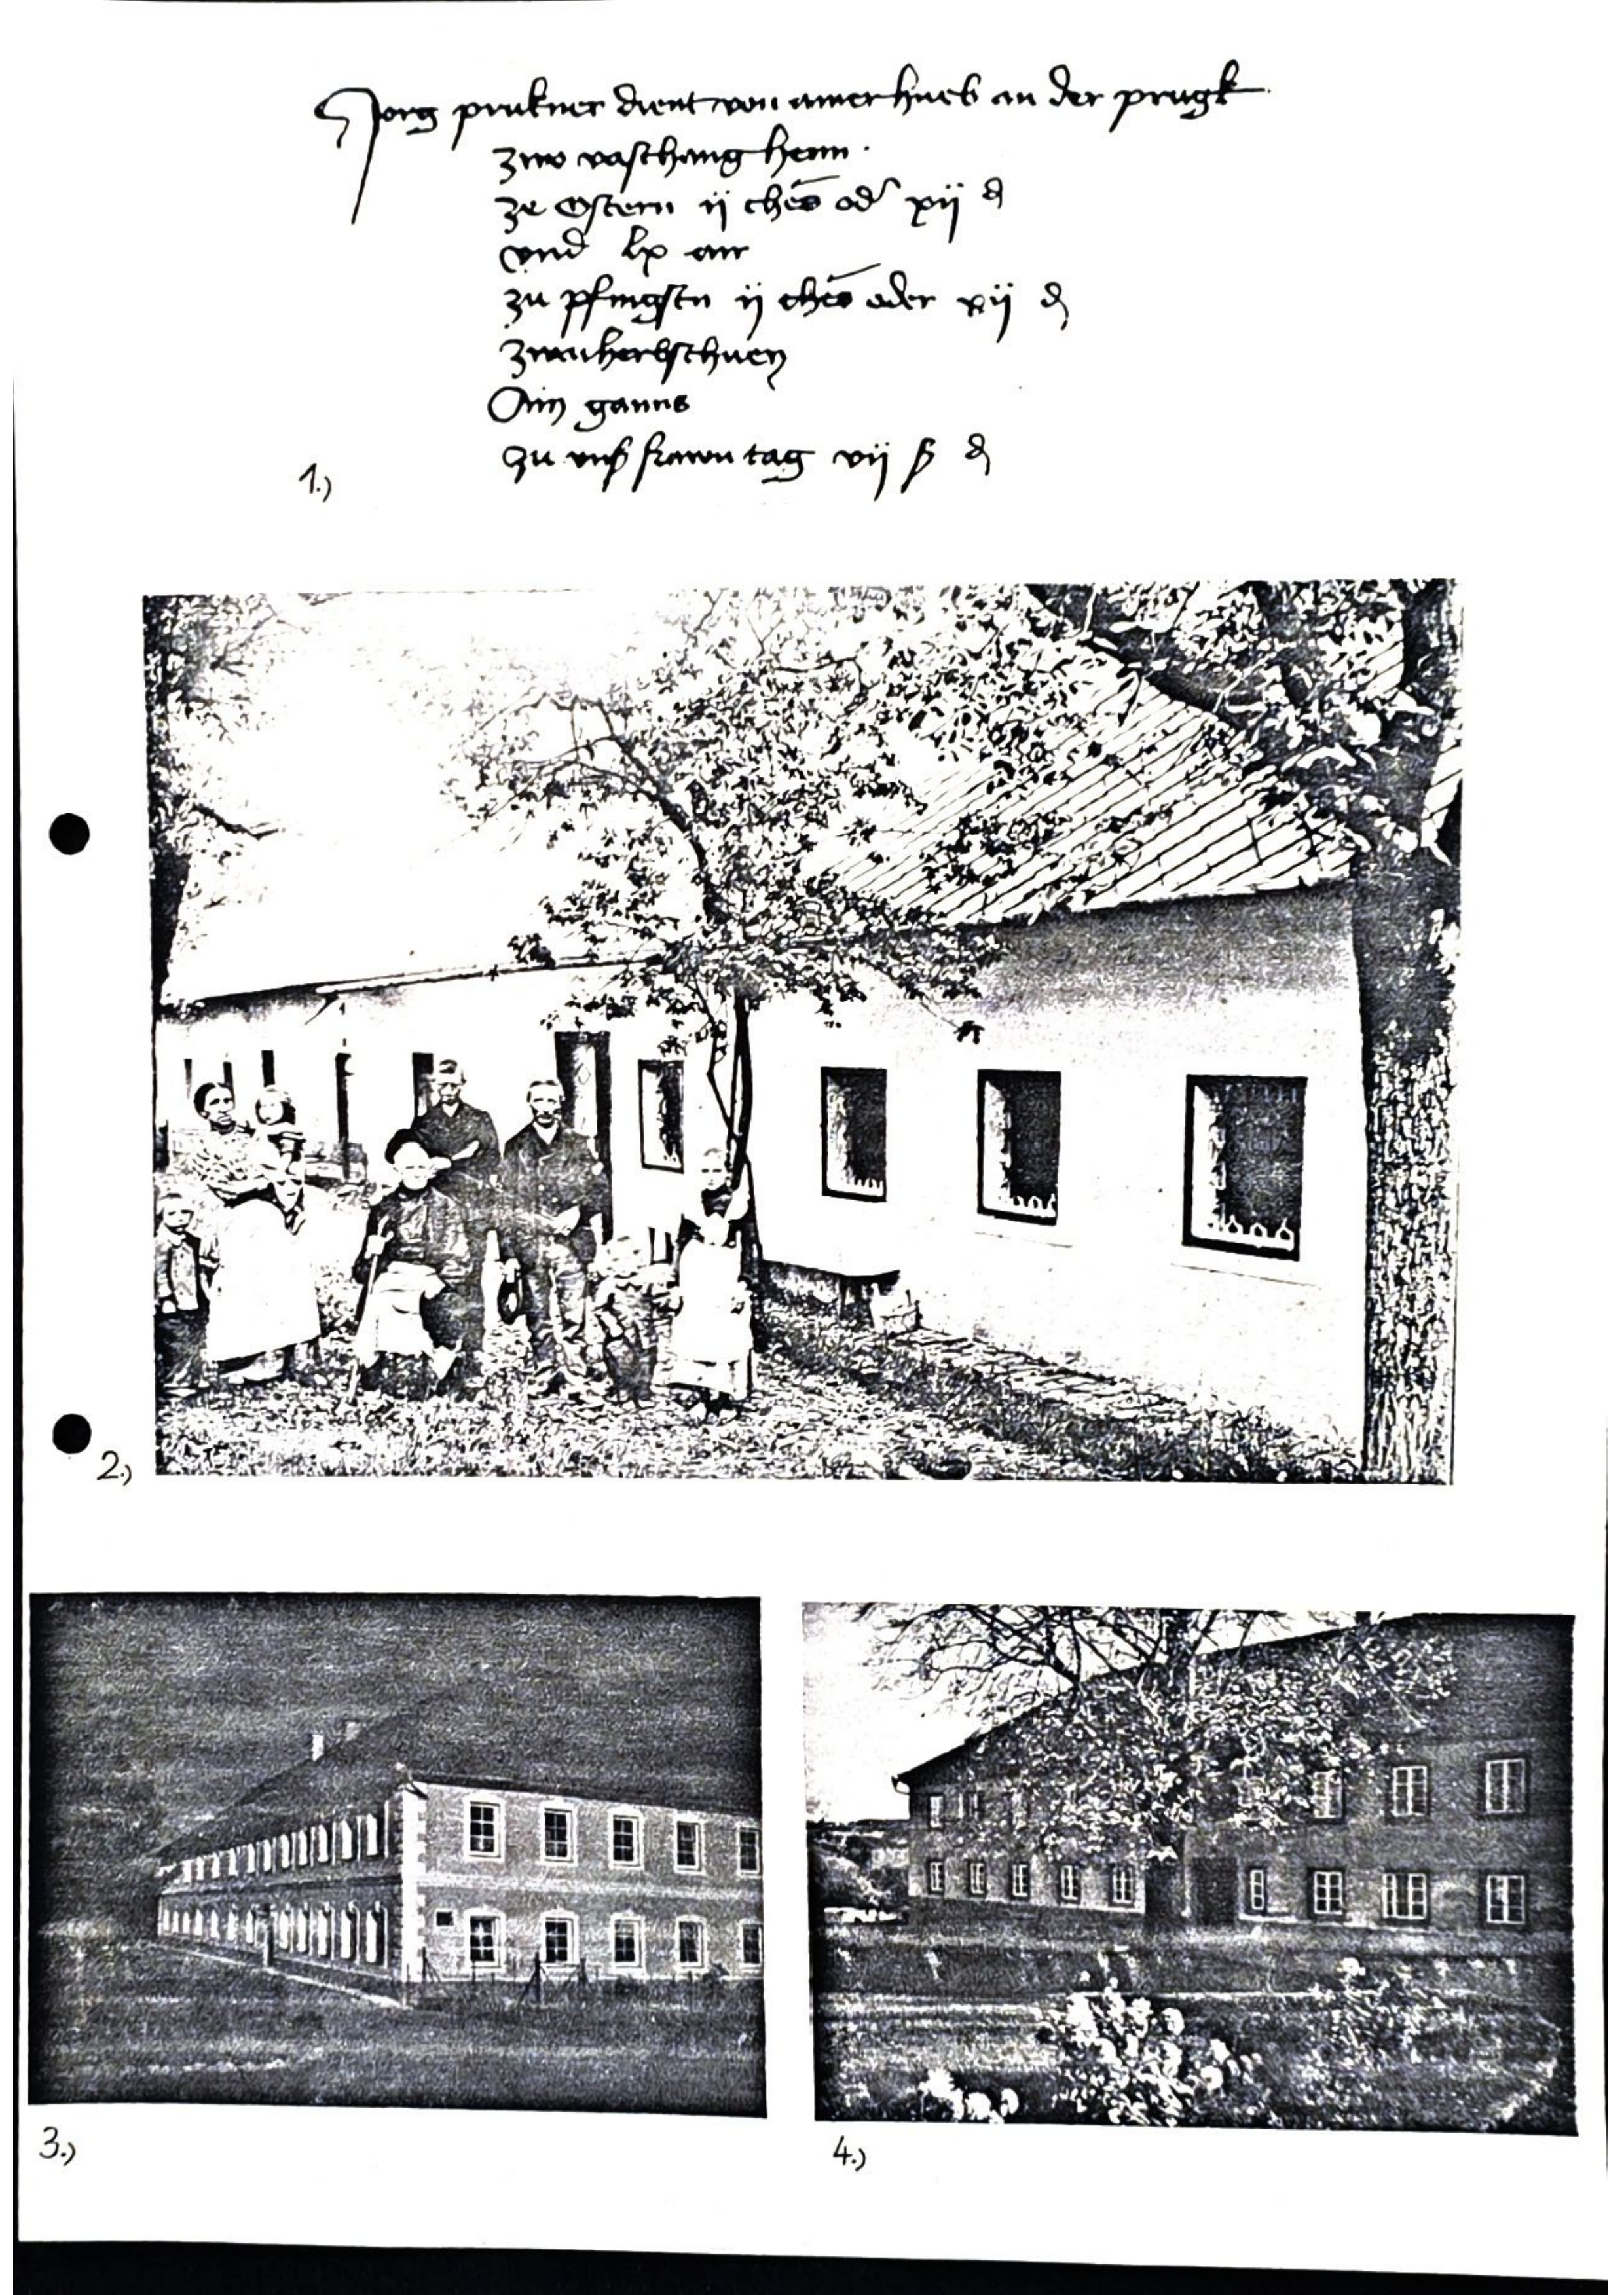 Jorg prukner dient von amer hueb an der prugk
zwo vaschang henn.
ze Ostern ij ches od xij d
vnd lx air
zu pfingstn ij ches oder xij d
zwai herbsthuen
Ain ganns
zu vns frawn tag vij ß d
1.)
2.)
3.)
4.)